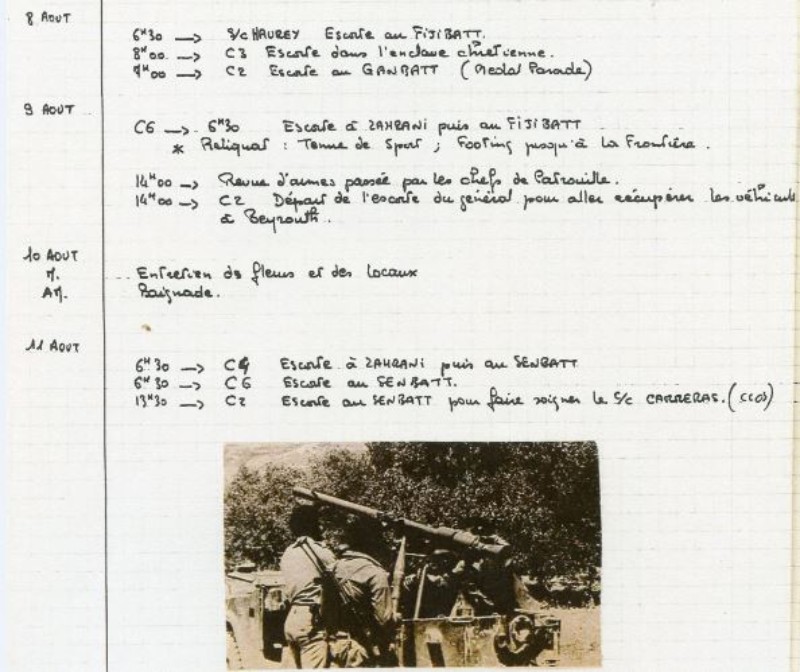 8 AOUT
6H30 → S/C HAUREY Escorte au FIJIBATT.
8H00 → C3 Escorte dans l'enclave chrétienne.
9H00 → C2 Escorte au GANBATT (Medal Parade)
9 AOUT
C6 → 6H30 Escorte à ZAHRANI puis au FIJIBATT
* Reliquat : Tenue de Sport ; Footing jusqu'à la Frontière.
14H00 → Revue d'armes passée par les chefs de Patrouille.
14H00 → C2 Départ de l'escorte du général pour aller récupérer les véhicules
à Beyrouth.
10 AOUT
M. Entretien des fleurs et des locaux
AM. Baignade.
11 AOUT
6H30 → C4 Escorte à ZAHRANI puis au SENBATT
6H30 → C6 Escorte au SENBATT.
13H30 → C2 Escorte au SENBATT pour faire soigner le S/C CARRERAS. (CCOS)